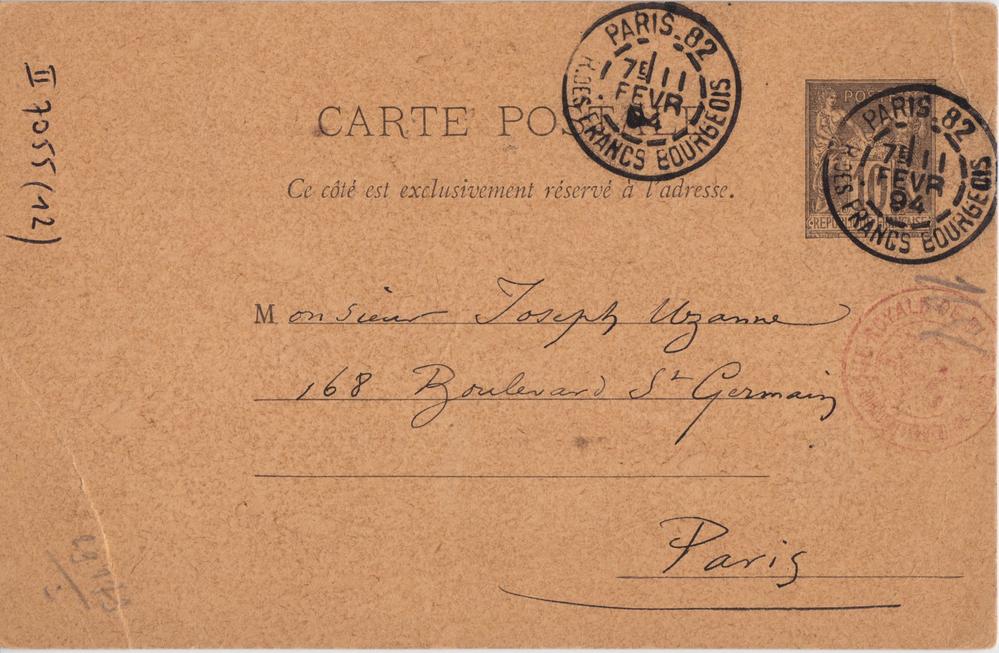 II 7055 (12)
CARTE POSTALE
Ce côté est exclusivement réservé à l'adresse.
PARIS. 82
7E 11
FEVR
94
R. DES FRANCS BOURGEOIS
PARIS. 82
7E 11
FEVR
94
R. DES FRANCS BOURGEOIS
POSTES
10
REPUBLIQUE FRANÇAISE
Monsieur Joseph Uzanne
168 Boulevard St Germain
Paris
ROYALE DE